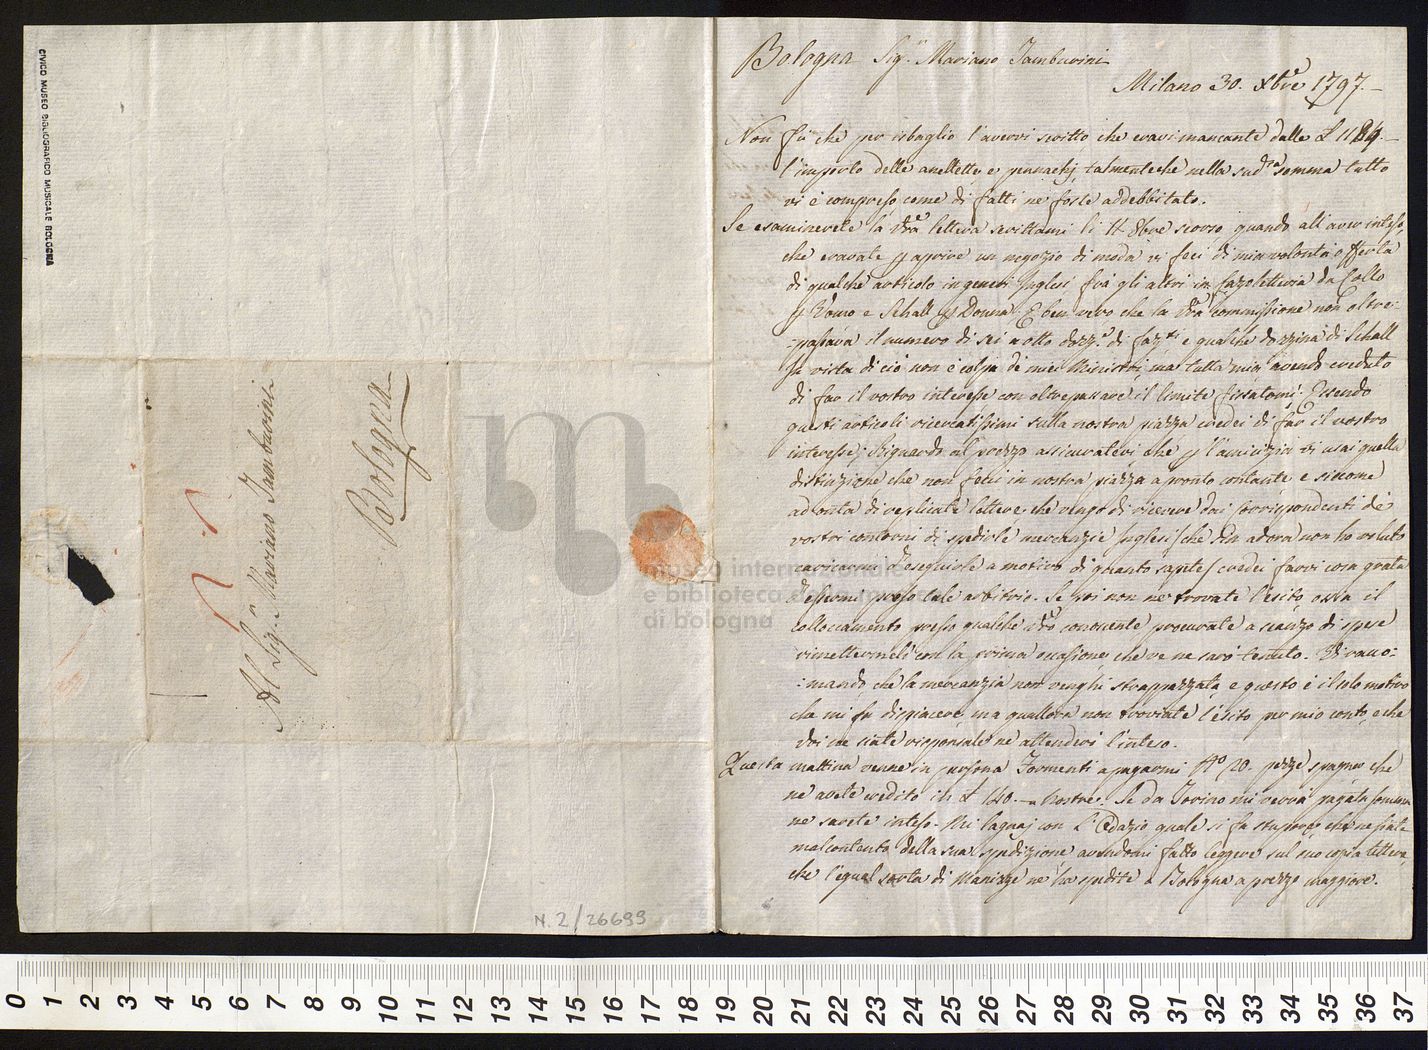 CIVICO MUSEO BIBLIOGRAFICO MUSICALE BOLOGNA
Al Sig.r Mariano Tamburini
Bologna
N. 2/26699
museo internazionale
e biblioteca della musica
di bologna
Bologna Sig.r Mariano Tamburini
Milano 30. Xbre 1797.
Non fù che per isbaglio l'avervi scritto che eravi mancante dalle £ 1184.
l'importo delle anellette e pennachj, talmenteché nella sud.a somma tutto
vi è compreso come di fatti ne foste addebbitato.
Se esaminerete la vra lettera scrittami li 14 8bre scorso quando all'aver inteso,
che eravate p aprire un negozio di moda vi feci di mia volontà offerta
di qualche articolo in generi Inglesi frà gli altri in fazoletteria da Collo
p Uomo e Schall p Donna. E ben vero che la vra commissione non oltre-
-passava il numero di sei a otto dozz.e di faz.ti e qualche dozzina di Schall
In vista di ciò non è colpa de miei Ministri, ma tutta mia avendo creduto
di far il vostro interesse con oltrepassare il limite fissatomi. Essendo
questi articoli ricercatissimi sulla nostra piazza credei di far il vostro
interesse; Riguardo al prezzo assicuratevi che p l'amicizia vi usai quella
distinzione che non feci in nostra piazza a pronto contante e siccome
ad onta di replicate lettere che vengo di ricevere dai Corrispondenti de
vostri contorni di spedirle mercanzie Inglesi che sin adora non ho voluto
caricarmi d'eseguirle a motivo di quanto sapete, credei farvi cosa grata
d'essermi preso tale arbitrio. Se poi non ne trovate l'esito ossia il
collocamento presso qualche vro conoscente procurate a scanzo di spese
rimettermeli con la prima occasione, che ve ne sarò tenuto. Vi racco-
-mando che la mercanzia non venghi strapazzata e questo è il solo motivo
che mi fa dispiacere, ma quallora non troviate l'esito per mio conto, e che
voi ne siate risponsale ne attenderò l'inteso.
Questa mattina venne in persona Formenti a pagarmi N.o 20. pezze spagne che
ne avete credito in £ 140. nostre. Se da Torino mi verrà pagata somma
ne sarete inteso. Mi lagnaj con quale si fa stupore che ne siate
malcontento della sua spedizione avendomi fatto leggere sul suo copia lettere,
che l'egual sorta di Manizze ne ha spedite a Bologna a prezzo maggiore.